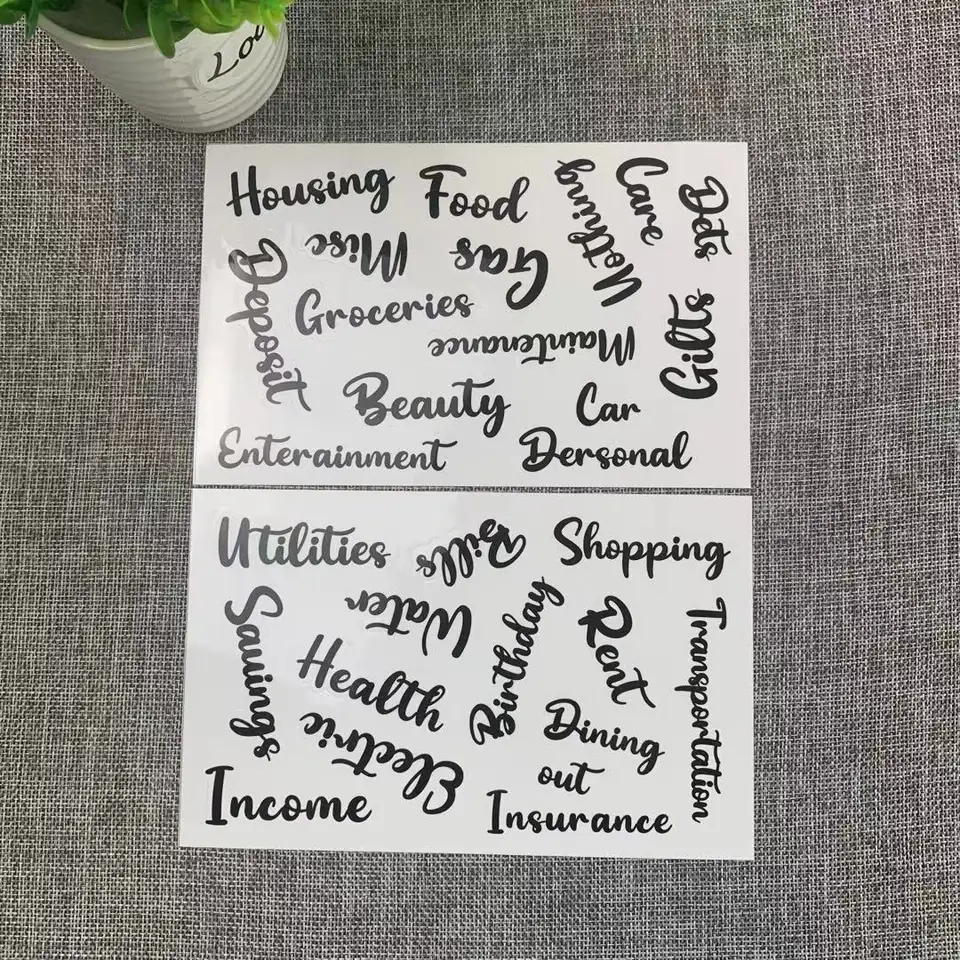 Housing
Food
Care
Pets
Misc
Gas
Deposit
Groceries
Maintenance
Gifts
Beauty
Car
Enterainment
Personal
Utilities
Bills
Shopping
Savings
Water
Birthday
Rent
Transportation
Health
Electric
Dining
out
Income
Insurance
Lov